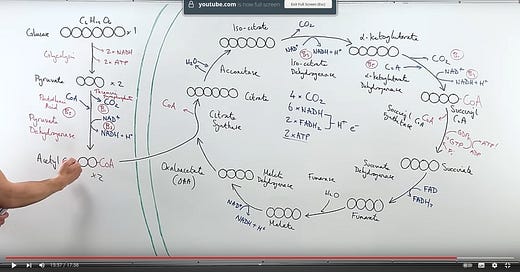 youtube.com is now full screen
Exit Full Screen (Esc)
C₆ H₁₂ O₆
Glucose
× 1
Glycolysis
2× NADH
2× ATP
Pyruvate
× 2
CoA
CO₂
Pantothenic
Acid
B₁
NAD⁺
B₃
NADH + H⁺
Pyruvate
Dehydrogenase
Acetyl
CoA
× 2
Iso-citrate
CO₂
NAD⁺
B₃
NADH + H⁺
Iso-citrate
Dehydrogenase
α-ketoglutarate
CO₂
B₁
CoA
NAD⁺
B₃
NADH + H⁺
α-ketoglutarate
Dehydrogenase
H₂O
Aconitase
Citrate
CoA
Citrate
Synthase
4 × CO₂
6 × NADH
2 × FADH₂
H⁺ e⁻
2 × ATP
CoA
Succinyl
CoA
Succinyl CoA
Synthetase
GDP
GTP
Pi
ATP
ADP
Succinate
Succinate
Dehydrogenase
FAD
FADH₂
Oxaloacetate
(OAA)
Malate
Dehydrogenase
Fumarase
H₂O
NAD⁺
NADH + H⁺
Malate
Fumarate
15:37 / 17:38